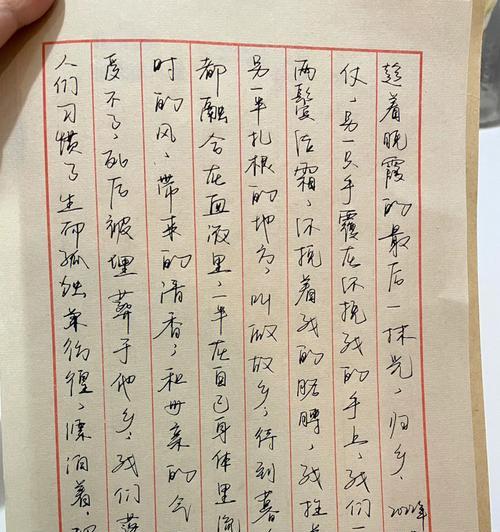 人们习惯了生而孤独兼彷徨，漂泊着，
受不了，死后被埋葬于他乡，我们落
时的风，带来的清香，和母亲的气
都融合在血液里，一半在自己身体里流
另一半扎根的地方，叫做故乡，待到暮
两鬓沾霜，你挽着我的胳膊，我拄着
仗，另一只手覆在你挽我的手上，我们一
趁着晚霞的最后一抹光，归乡。 2022年